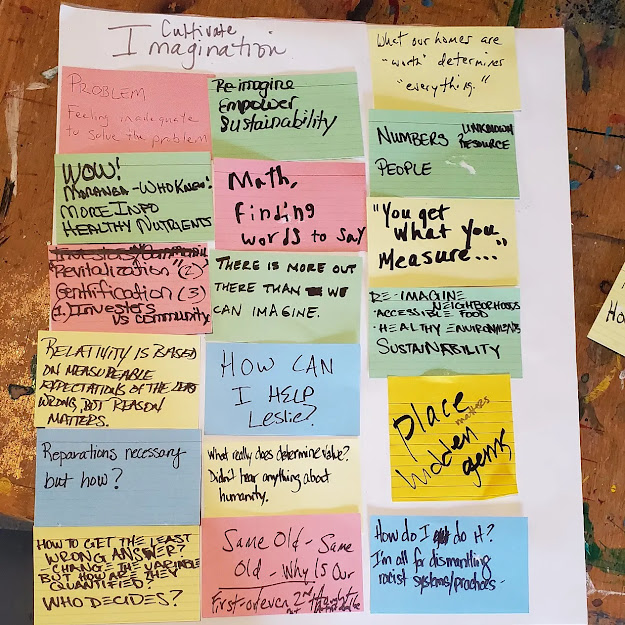 Cultivate
Imagination
PROBLEM
Feeling inadequate
to solve the problem
Re-imagine
Empower
Sustainability
What our homes are
"worth" determines
"everything."
WOW!
MORANGA-WHO KNEW!
MORE INFO
HEALTHY NUTRIENTS
Math,
finding
words to say
NUMBERS
UNKNOWN
RESOURCE
PEOPLE
"Revitalization" (2)
Gentrification (3)
(1.) Investers
vs Community
THERE IS MORE OUT
THERE THAN WE
CAN IMAGINE.
"You get
what you
Measure..."
RELATIVITY IS BASED
ON MEASUREABLE
EXPECTATIONS OF THE LEAST
WRONG, BUT REASON
MATTERS.
HOW CAN
I HELP
Leslie?
RE-IMAGINE
NEIGHBORHOODS
•ACCESSIBLE FOOD
•HEALTHY ENVIRONMENTS
SUSTAINABILITY
Reparations necessary
but how?
What really does determine value?
Didn't hear anything about
humanity.
place
matters
hidden
gems
HOW TO GET THE LEAST
WRONG ANSWER?
- CHANGE THE VARIABLE
BUT HOW ARE THEY
QUANTIFIED?
WHO DECIDES?
Same Old - Same
Old - Why Is Our
First-or even 2nd thought
How do I do it?
I'm all for dismantling
racist systems/practices-
Ho